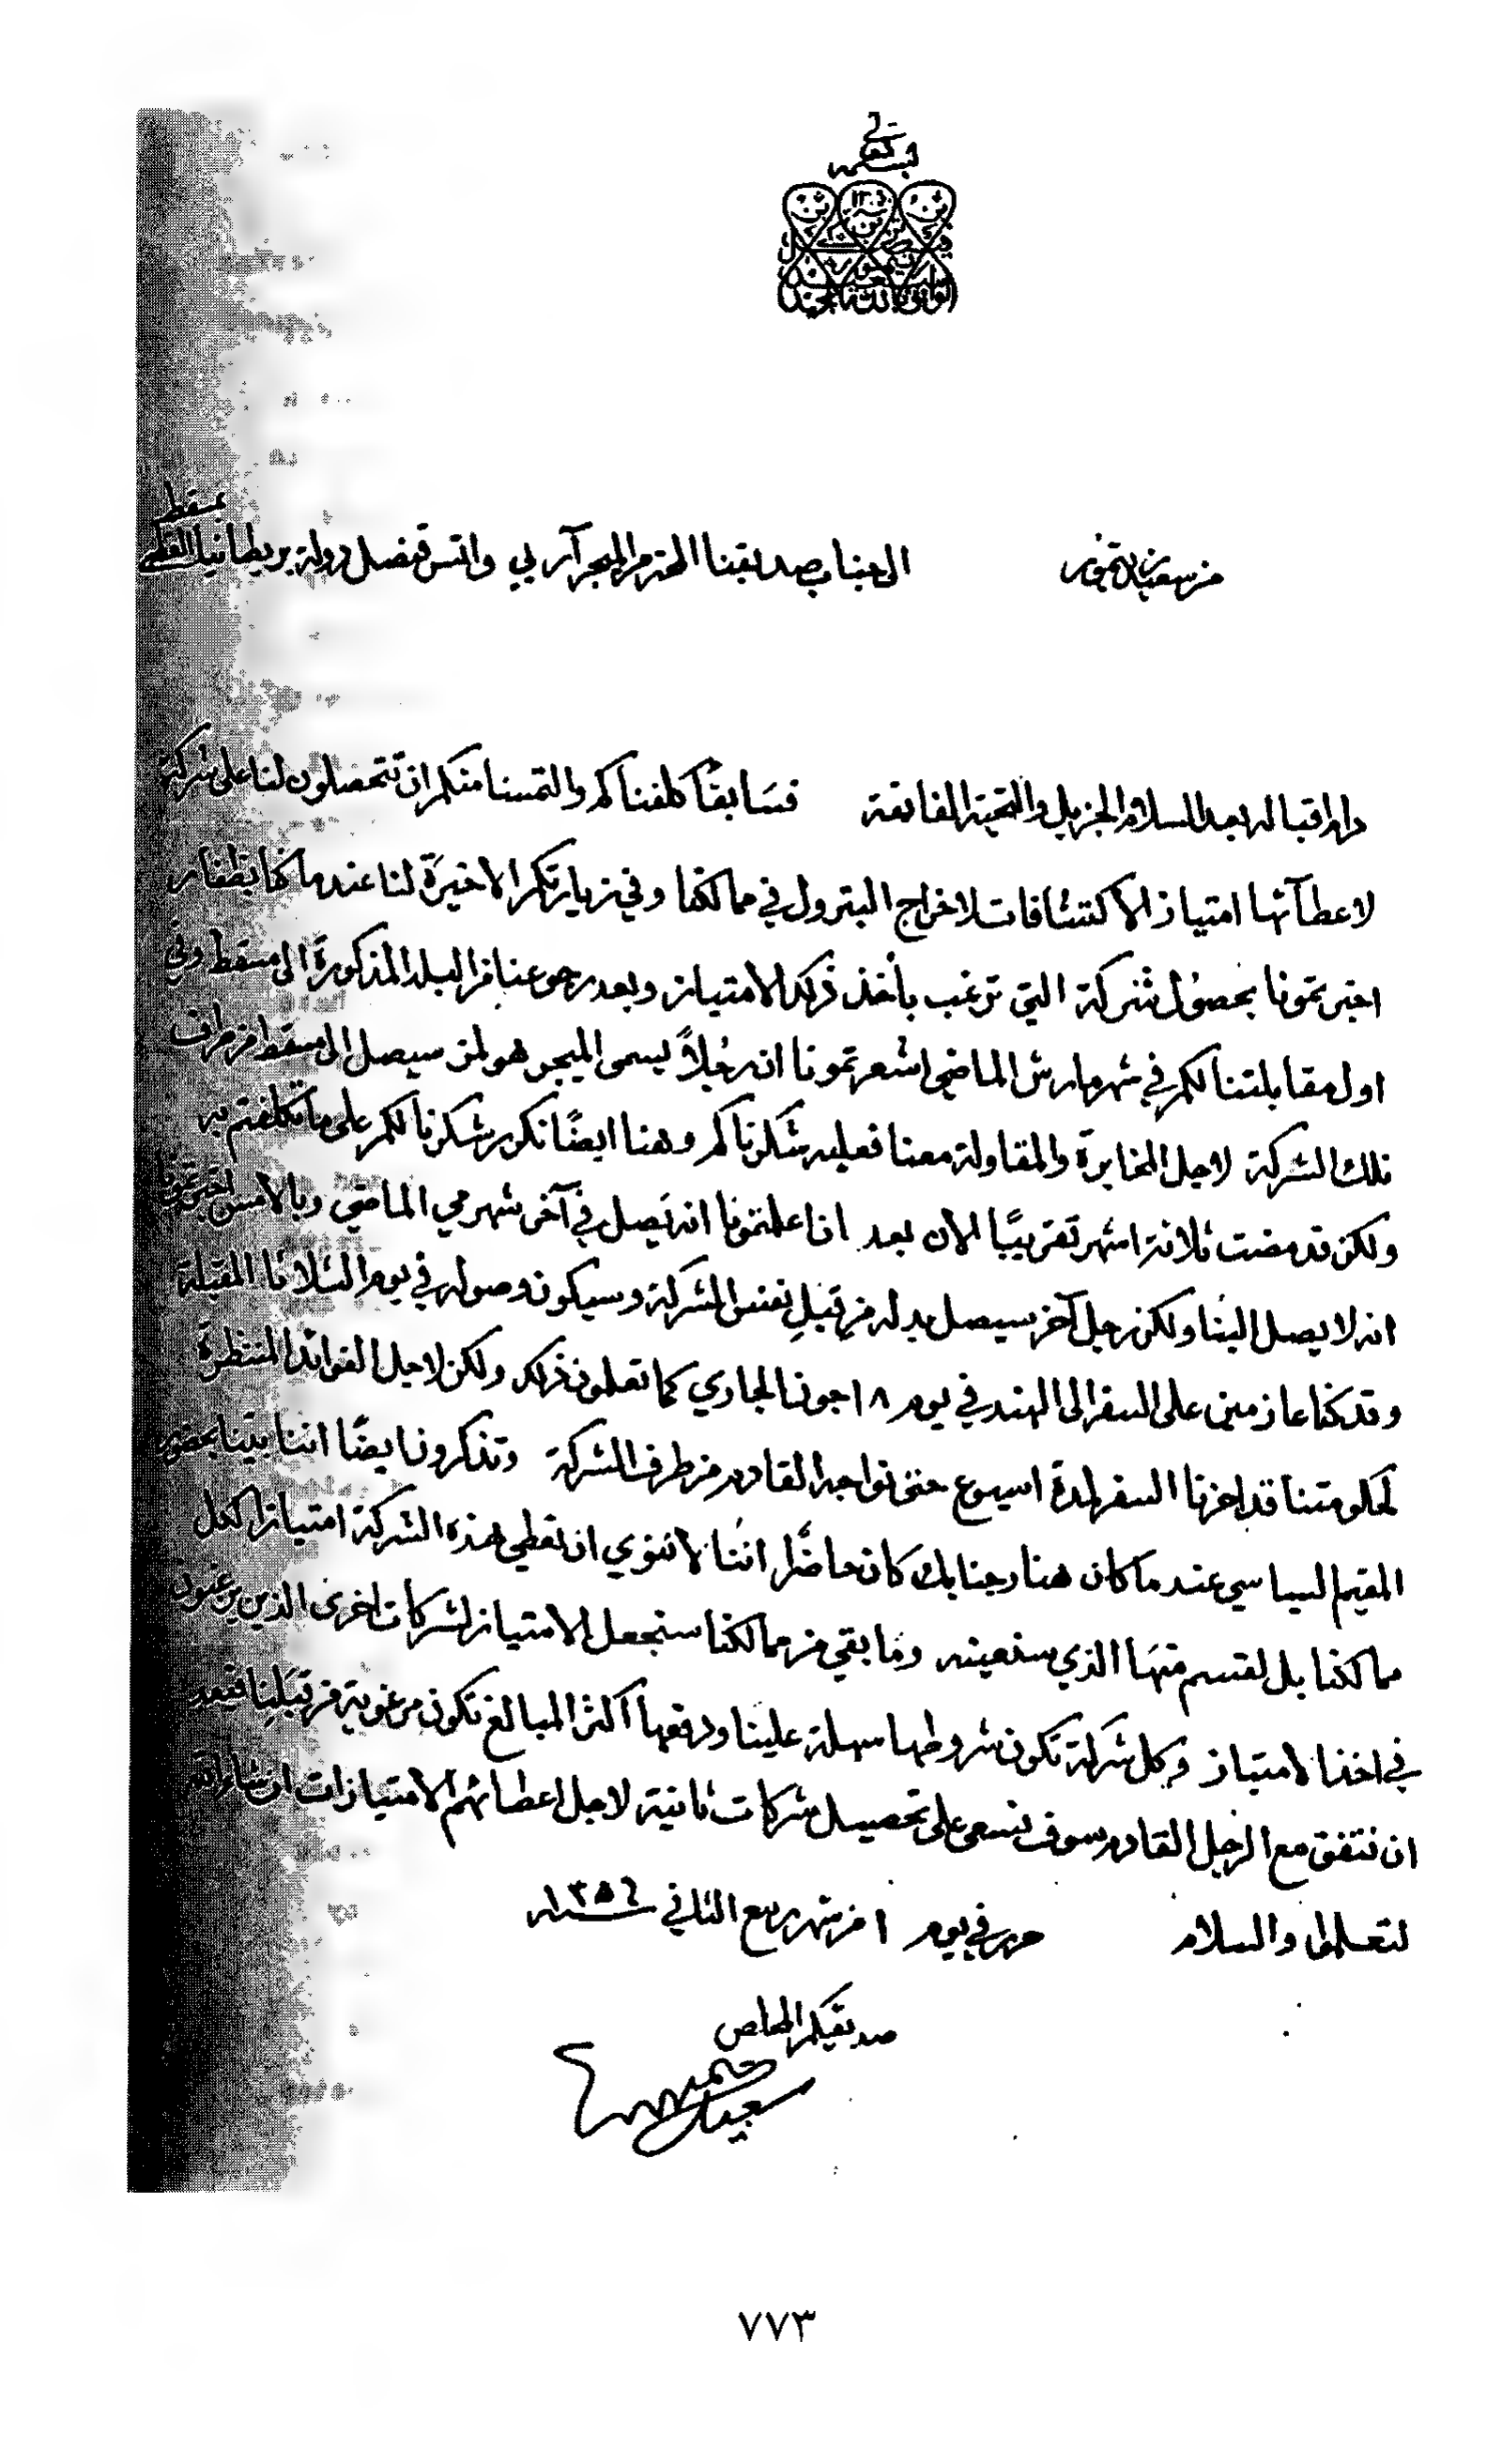 بسمه تعالى
من سعيد بن تيمور الى جناب صديقنا المحترم الميجر آر بي واتس قنصل دولة بريطانيا العظمى
بمسقط
دام اقباله بعد السلام الجزيل والتحية الفائقة فسابقًا كلفناكم والتمسنا منكم ان تتحصلون لنا على شركة
لاعطآئها امتياز الاكتشافات لاخراج البترول في ممالكنا وفي زيارتكم الاخيرة لنا عندما كنا بظفار
اخبرتمونا بحصول شركة التي ترغب بأخذ ذلك الامتياز وبعد رجوعنا من البلد المذكورة الى مسقط وفي
اول مقابلتنا لكم في شهر مارش الماضي اشعرتمونا ان رجلاً يسمى الميجر هولمز سيصل الى مسقط من طرف
تلك الشركة لاجل المخابرة والمقاولة معنا فعليه شكرناكم وهنا ايضًا نكرر شكرنا لكم على ما تكلفتم به
ولكن قد مضت ثلاثة اشهر تقريبًا الآن بعد ان اعلمتمونا انه يصل في آخر شهر مي الماضي وبالامس اخبرتمونا
انه لا يصل الينا ولكن رجل آخر سيصل بدله من قبل نفس الشركة وسيكون وصوله في يوم الثلاثا المقبلة
وقد كنا عازمين على السفر الى الهند في يوم ١٨ جون الجاري كما تعلمون ذلك ولكن لاجل الفوائد المنتظرة
لحكومتنا قد اخرنا السفر لمدة اسبوع حتى نواجه القادم من طرف الشركة وتذكرون ايضًا اننا بينا بحضور
المقيم السياسي عندما كان هنا وجنابك كان حاضرًا اننا لا ننوي ان نعطي هذه الشركة امتيازا لكل
ممالكنا بل لقسم منها الذي سنعينه وما بقي من ممالكنا سنجعل الامتياز لشركات اخرى الذين يرغبون
في اخذ الامتياز وكل شركة تكون شروطها سهلة علينا ودفعها اكثر المبالغ تكون مرغوبة من قبلنا فبعد
ان نتفق مع الرجل القادم سوف نسعى على تحصيل شركات ثانية لاجل اعطائهم الامتيازات ان شاء الله
لتعلموا والسلام حرر في يوم ١ من شهر ربيع الثاني سنة ١٣٥٦
صديقكم المخلص
سعيد بن تيمور
٧٧٣